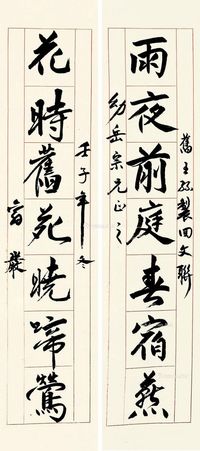 舊王孫製回文聯
雨夜前庭春宿燕
幼岳宗兄正之
壬子年冬
花時舊苑曉啼鶯